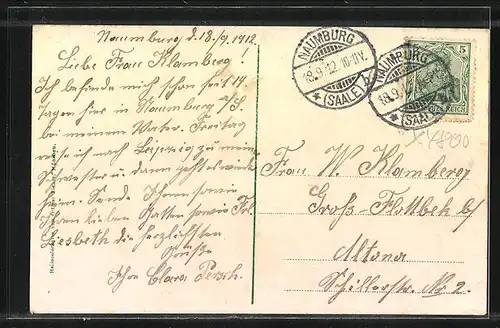 Naumburg d. 18/9. 1912.
Liebe Frau Klamberg!
Ich befinde mich schon seit 14
Tagen hier in Naumburg a/S.
bei meinem Vater. Freitag
reise ich nach Leipzig zu meiner
Schwester u. dann geht es wieder
heim. Sende Ihnen sowie
Ihrem lieben Gatten sowie Frl.
Liesbeth die herzlichsten
Grüße
Ihre Clara Persch.
NAUMBURG
18.9.12. 10-11V.
* (SAALE) b.
NAUMBURG
18.9.
* (SAALE)
5
REICH
Frau W. Klamberg
Groß-Flottbek b/
Altona
Schillerstr. Nr. 2.